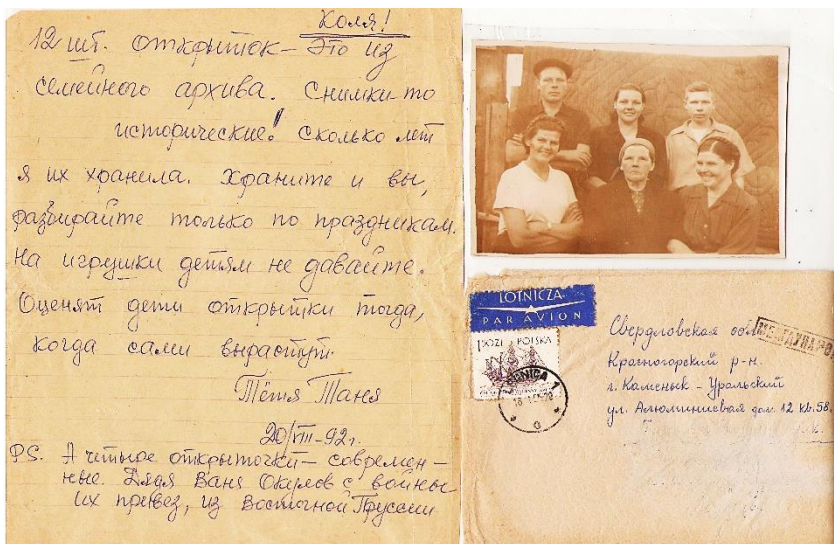 Коля!
12 шт. открыток – Это из
семейного архива. Снимки-то
исторические! Сколько лет
я их хранила. Храните и вы,
разбирайте только по праздникам.
На игрушки детям не давайте.
Оценят дети открытки тогда,
когда сами вырастут.
Тётя Таня
20/VIII-92г.
PS. А четыре открыточки – современ-
ные. Дядя Ваня Окулов с войны
их привез, из Восточной Пруссии
LOTNICZA
PAR AVION
POLSKA
LEGNICA 1
Свердловская обл.
МЕЖДУНАРО
Красногорский р-н.
г. Каменск-Уральский
ул. Алюминиевая дом. 12 кв. 58.